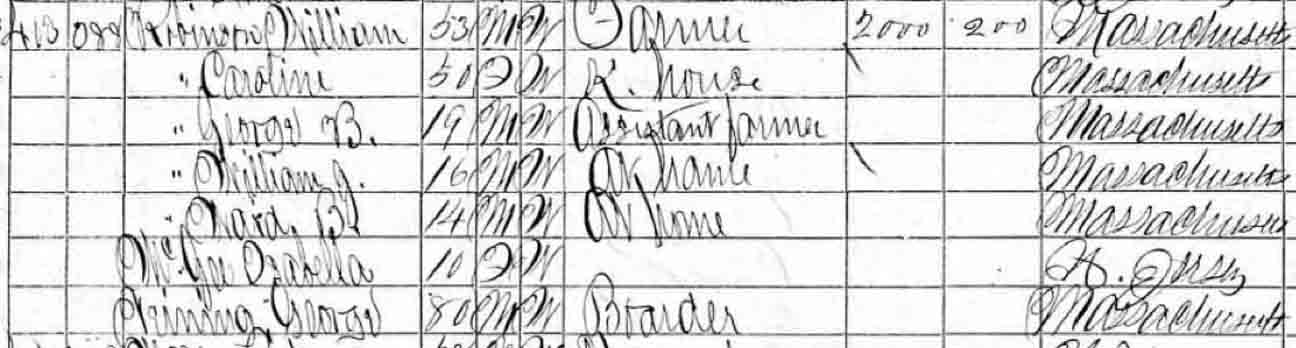 413 Robinson William 53 M W Farmer 2000 200 Massachusetts
" Caroline 50 F W K. house Massachusetts
" George B. 19 M W Assistant farmer Massachusetts
" William J. 16 M W At home Massachusetts
" Ward B 14 M W At home Massachusetts
Mc Gee Ozabella 10 F W N. Jersey
George 80 M W Boarder Massachusetts